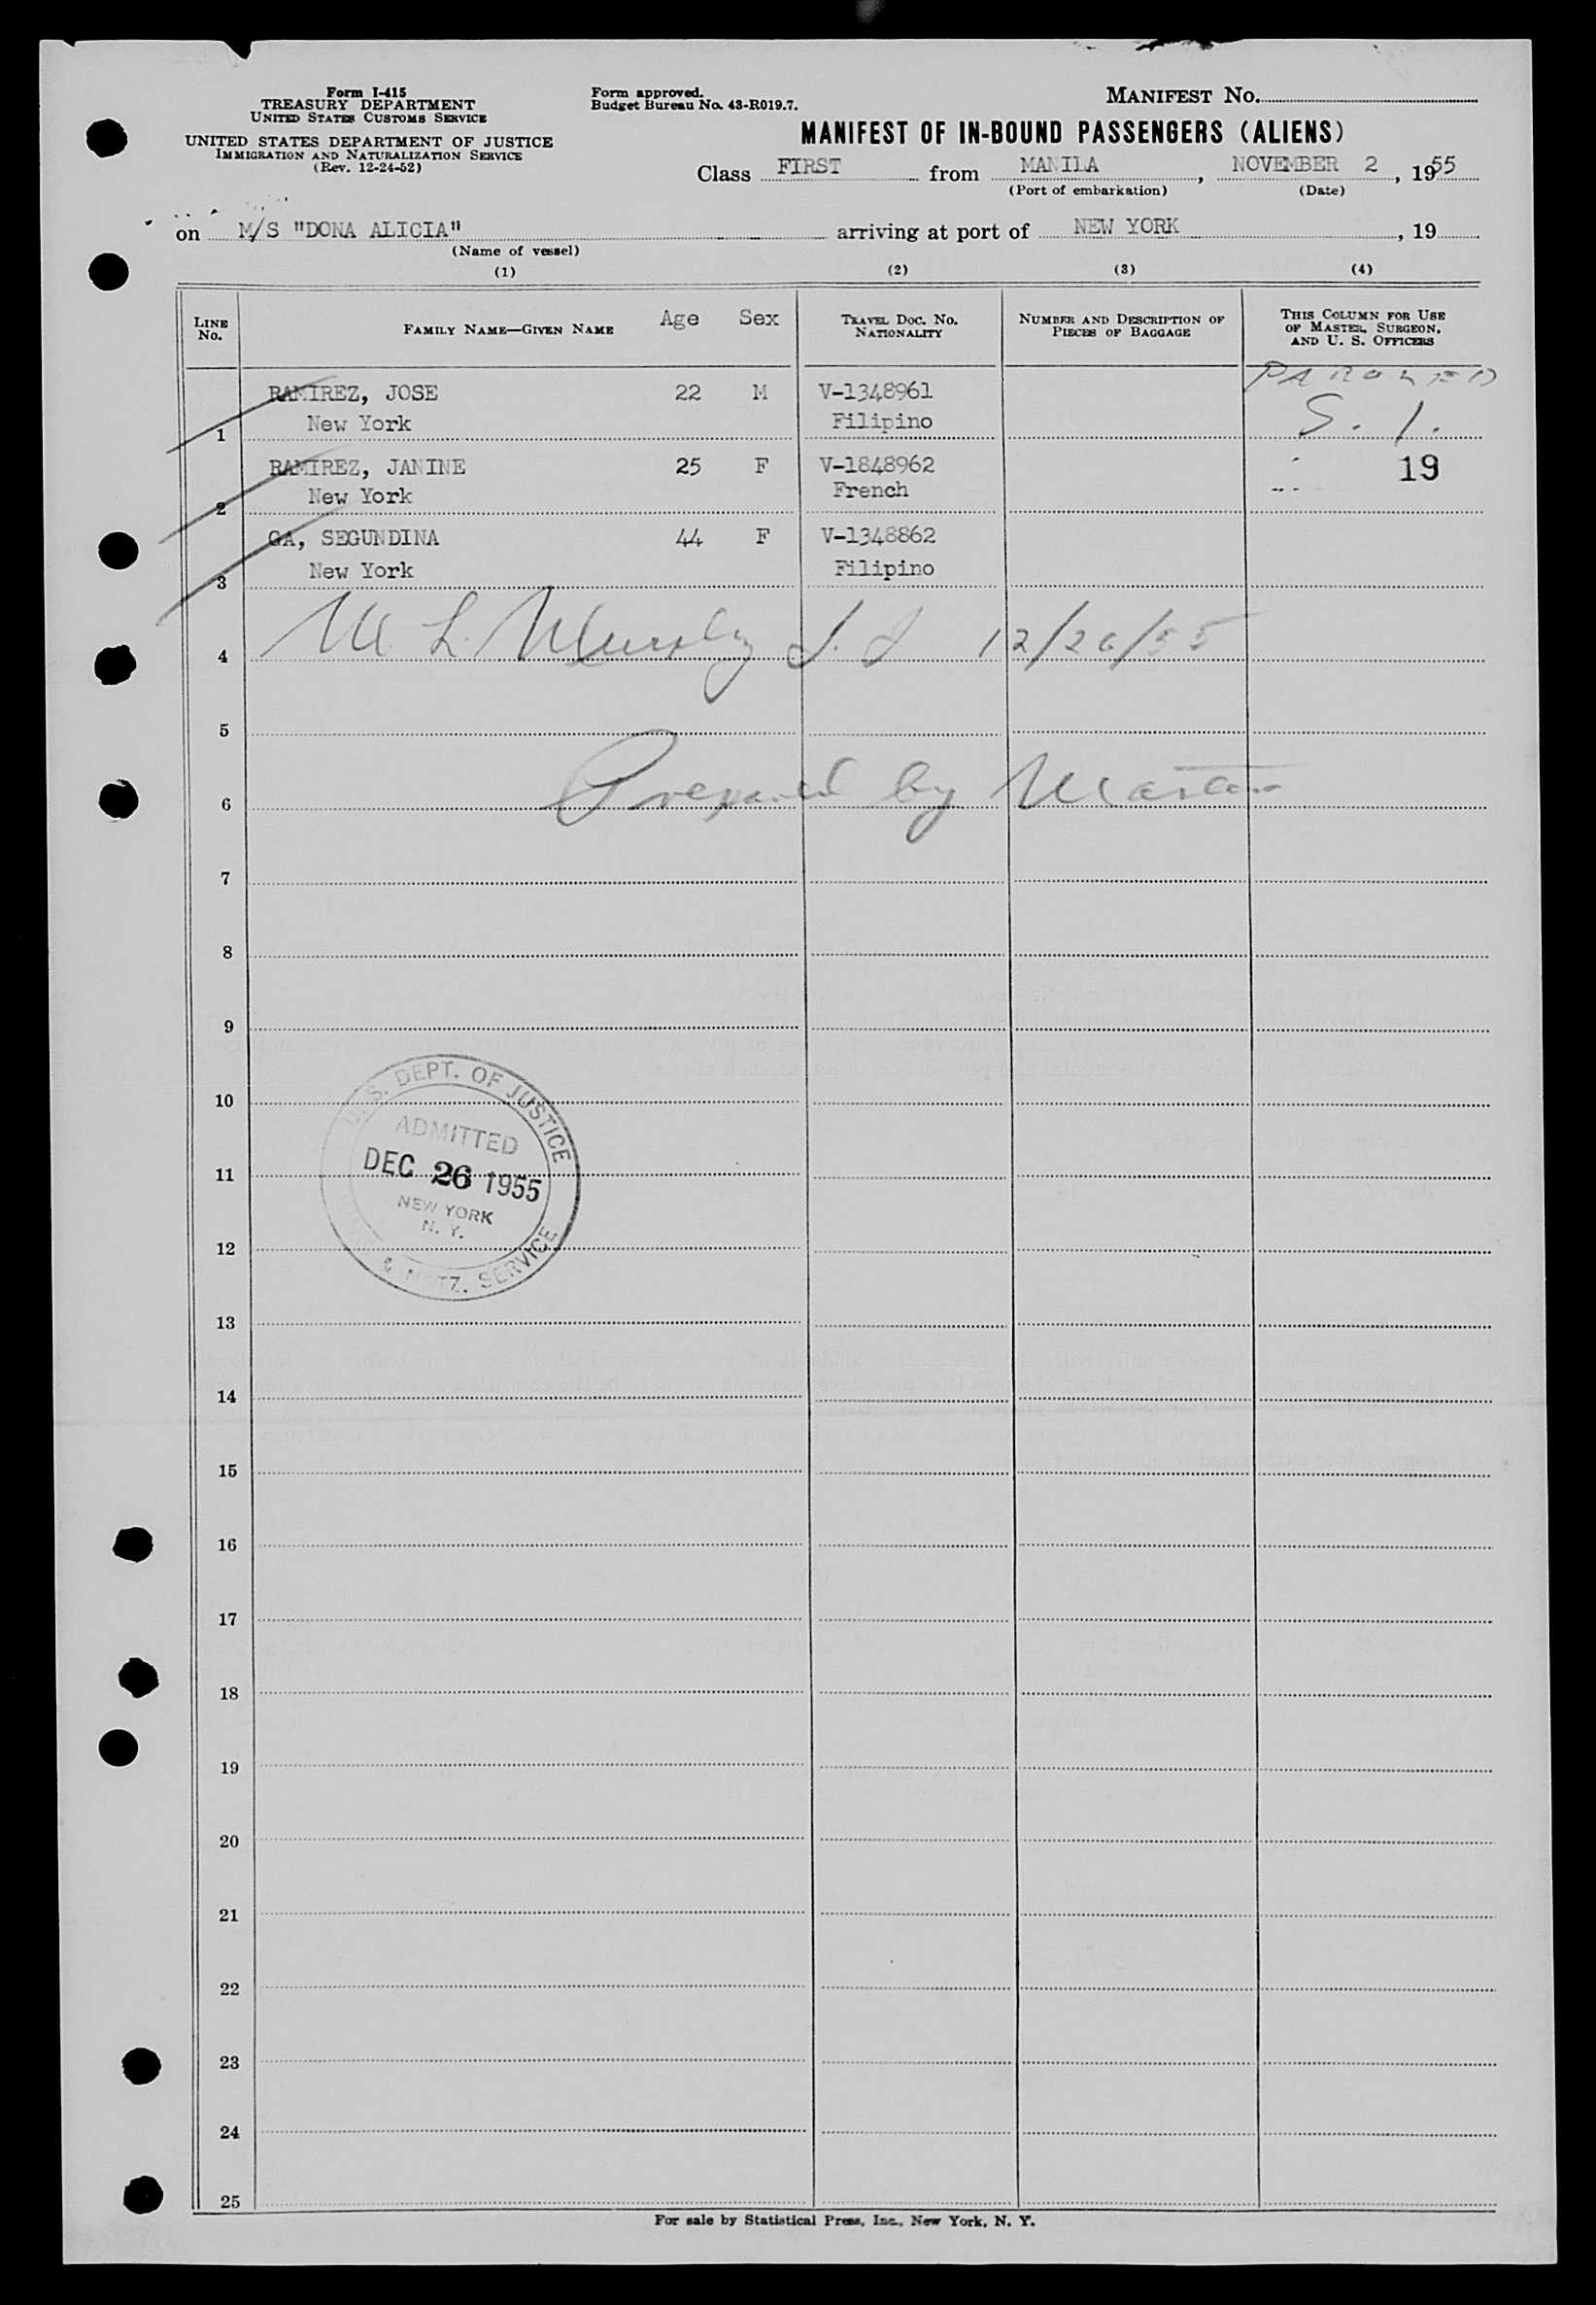 Form I-415
TREASURY DEPARTMENT
UNITED STATES CUSTOMS SERVICE
UNITED STATES DEPARTMENT OF JUSTICE
IMMIGRATION AND NATURALIZATION SERVICE
(Rev. 12-24-52)
Form approved.
Budget Bureau No. 43-R019.7.
MANIFEST No.
MANIFEST OF IN-BOUND PASSENGERS (ALIENS)
Class FIRST from MANILA, NOVEMBER 2, 1955
(Port of embarkation) (Date)
on M/S "DONA ALICIA" arriving at port of NEW YORK, 19
(Name of vessel)
(1) (2) (3) (4)
LINE No. FAMILY NAME—GIVEN NAME Age Sex TRAVEL DOC. No. NATIONALITY NUMBER AND DESCRIPTION OF PIECES OF BAGGAGE THIS COLUMN FOR USE OF MASTER, SURGEON, AND U. S. OFFICERS
PAROLED
RAMIREZ, JOSE 22 M V-1348961
1 New York Filipino S. I.
RAMIREZ, JANINE 25 F V-1848962 19
2 New York French
GA, SEGUNDINA 44 F V-1348862
3 New York Filipino
4 M L. Murphy 12/26/55
5
6 Prepared by Master
7
8
9
10
11
12
13
14
15
16
17
18
19
20
21
22
23
24
25
U. S. DEPT. OF JUSTICE
ADMITTED
DEC 26 1955
NEW YORK
N. Y.
& NATZ. SERVICE
For sale by Statistical Press, Inc., New York, N. Y.